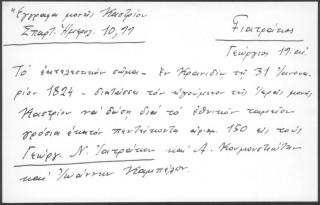 "Εγγραφα μονῆς Καστρίου
Σπαρτ. Ἡμερολ. 10, 11
Γιατράκος
Γεώργιος 19. αἰ
Τό ἐκτελεστικόν σῶμα - ἐν Κρανιδίῳ τῇ 31 Ἰανουα-
ρίου 1824 - διατάσσει τόν ἡγούμενον τῆς ἱερᾶς μονῆς
Καστρίου νά δώσῃ διά τό ἐθνικόν ταμεῖον
γρόσια ἑκατόν πεντήκοντα ἀριθμ. 150 εἰς τούς
Γεώργ. Ν. Γιατράκον καί Α. Κουμουστιώτην
καί Ἰωάννην Καμπέλον.